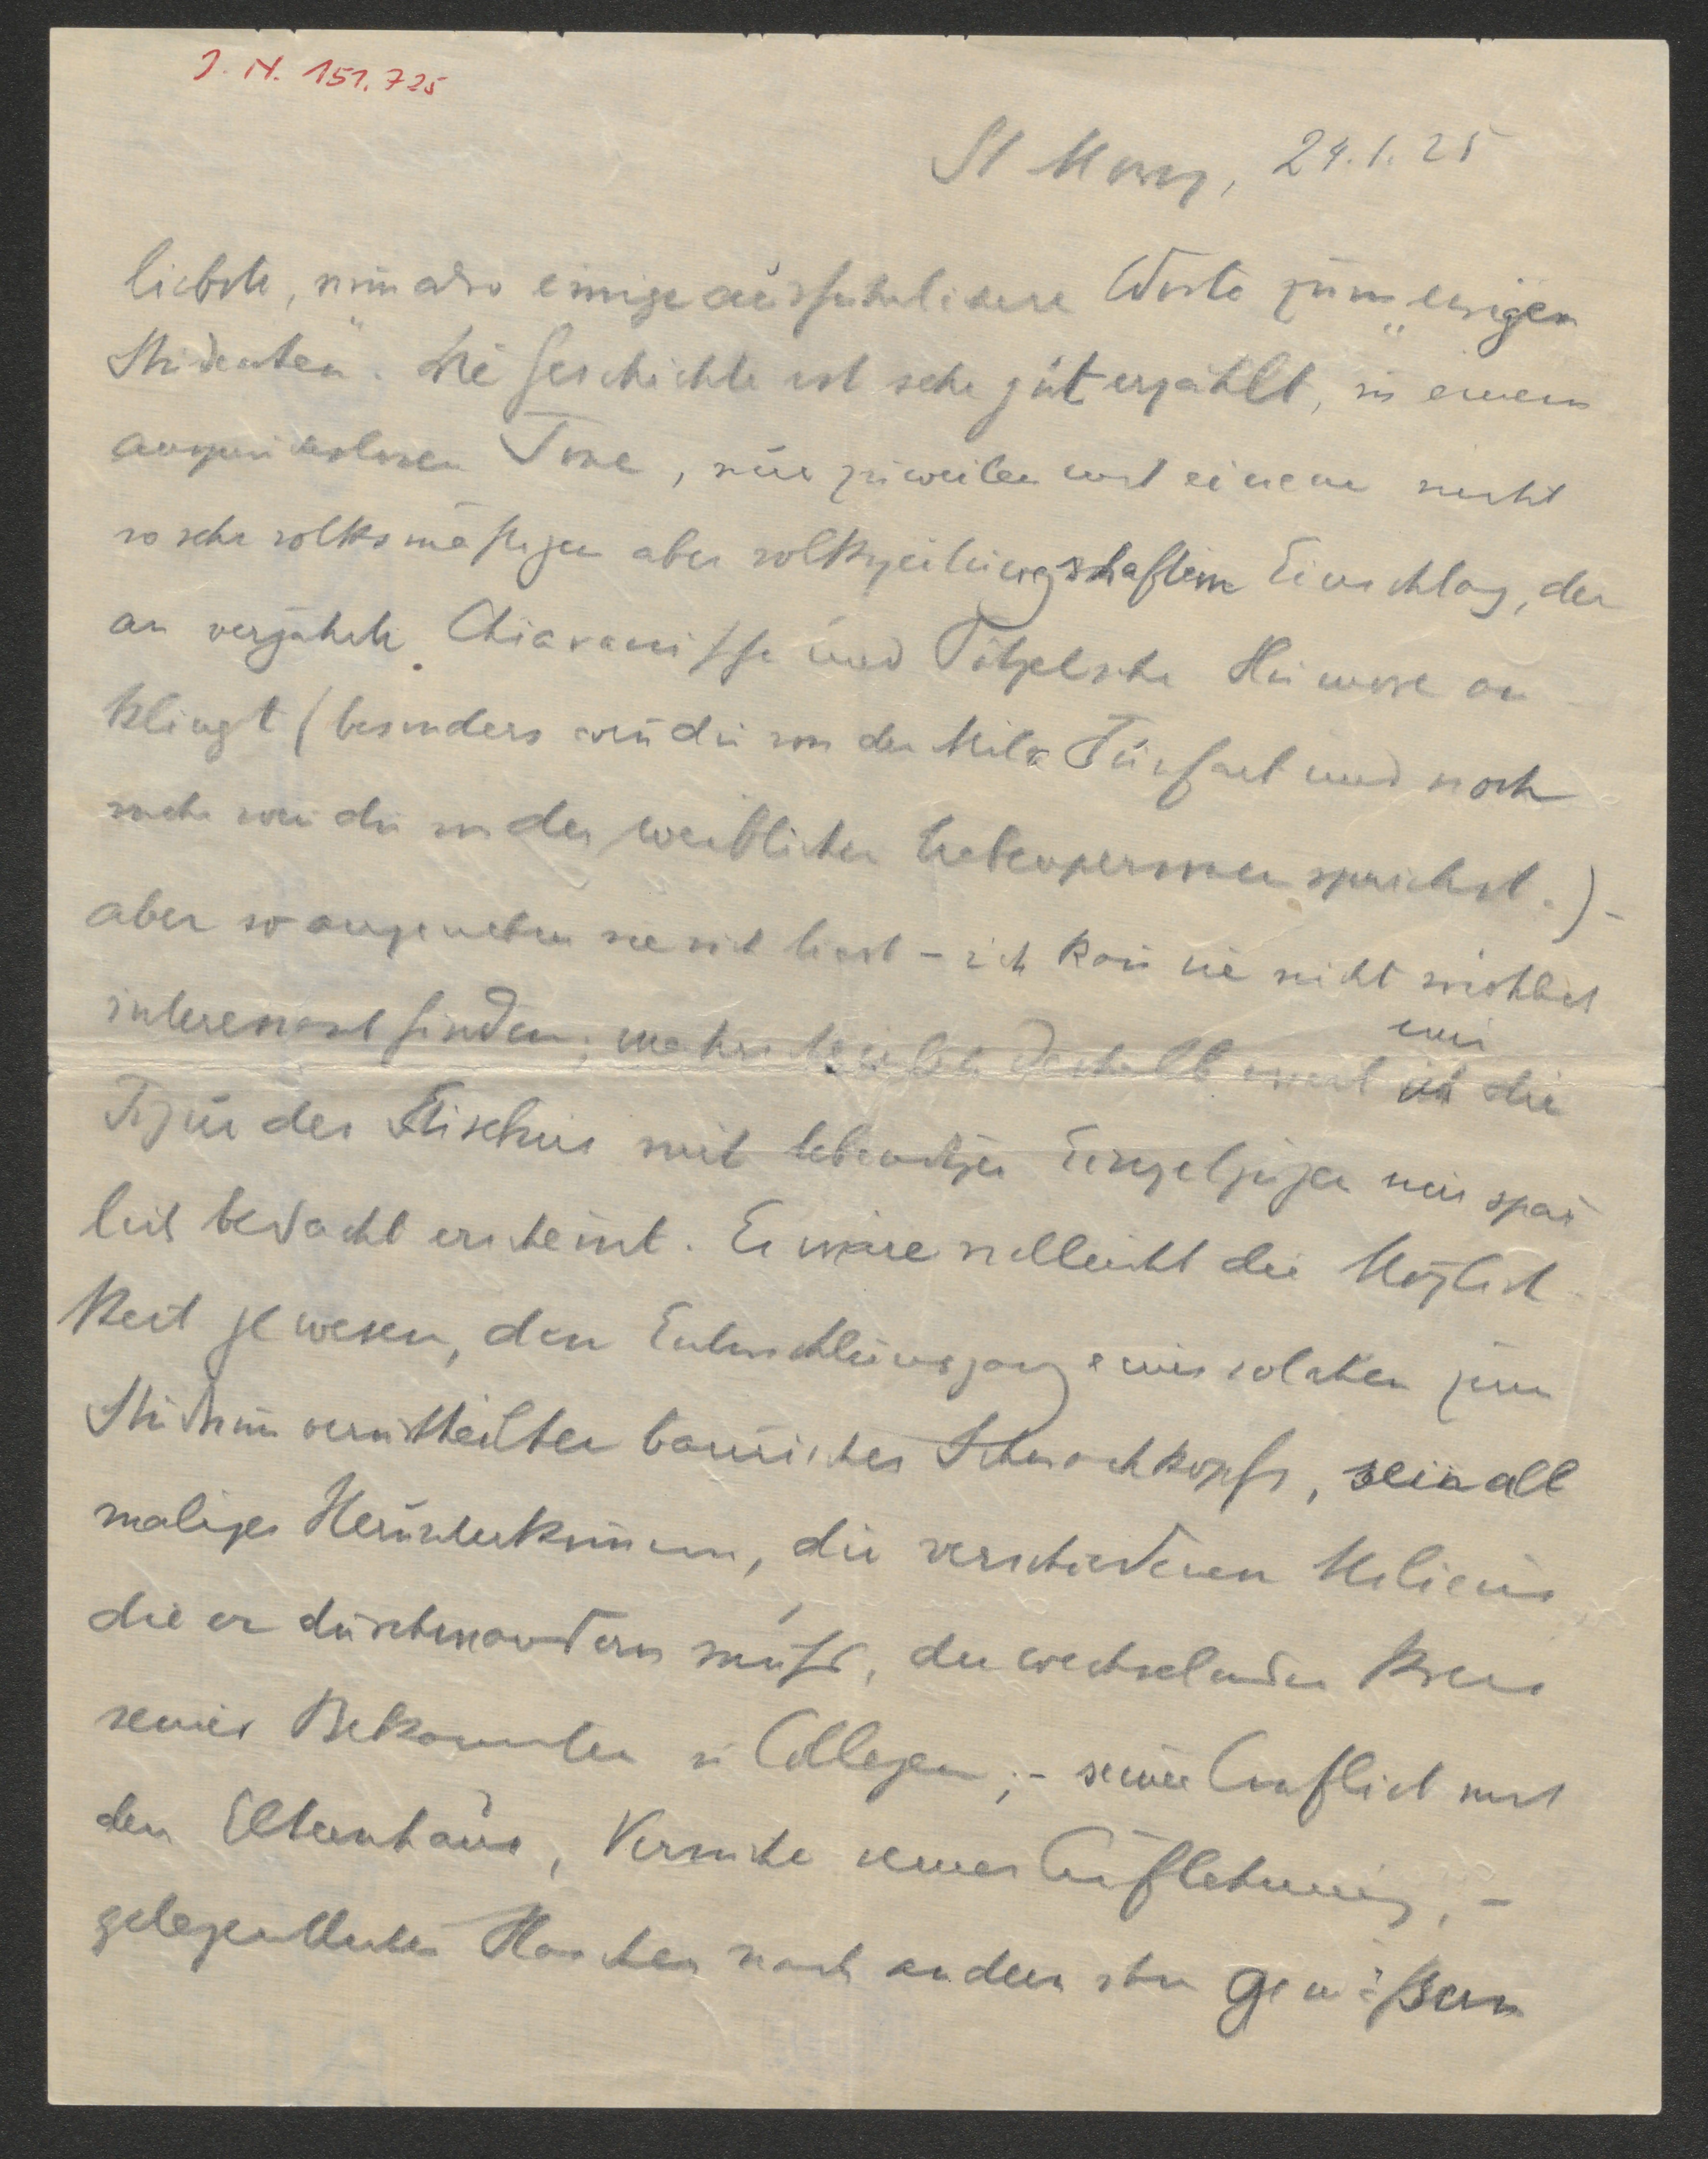 J. N. 151.725
St Moriz, 24.1.25
liebste, nun also einige ausführlichere Worte zum „ewigen
Studenten“. Die Geschichte ist sehr gut erzählt, in einem
anspruchslosen Tone, nur zuweilen mit einem nicht
so sehr volksmäßigen aber volkszeitungshaften Einschlag, der
an verjährte Chiavacci'sche und Pötzelsche Humore an
klingt (besonders wen du von der und noch
mehr wen du von den weiblichen Nebenpersonen sprichst.) –
aber so angenehm sie sich liest – ich kan sie nicht wirklich
interessant finden; wahrscheinlich deshalb weil mir die
Figur des mit lebendigen Einzelzügen nur spär
lich bedacht erscheint. Es wäre vielleicht die Möglich
keit gewesen, den Entwicklungsgang eines solchen zum
Studium verurtheilten bäurischen Schwachkopfs, sein all
maliges Herunterkommen, die verschiedenen Milieus
die er durchwandern muß, der wechselnden Kreis
seiner Bekannten u Collegen; – seine Conflict mit
dem Elternhaus, Versuche seiner Auflehnung, –
gelegentliches Haschen nach andern ihm gemäßern